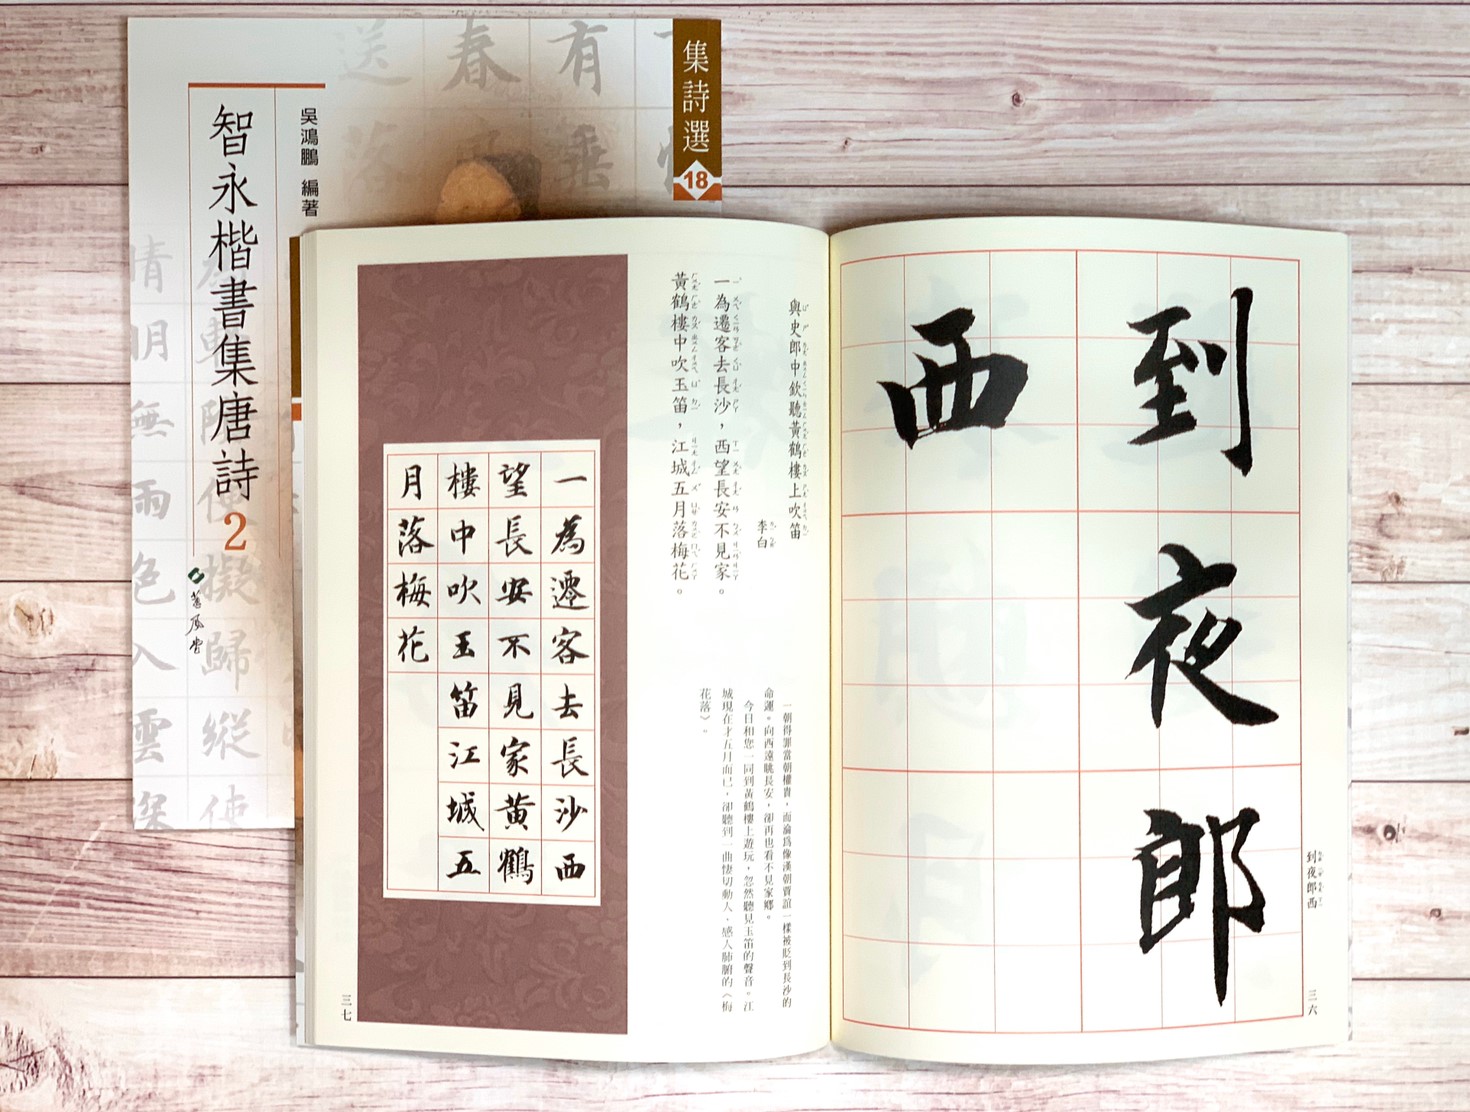 集詩選
18
吳鴻鵬 編著
智永楷書集唐詩2
有
春
送
垂
落
晴明無雨色入雲深
使
擬歸縱使
到夜郎
西
到夜郎西
三六
與史郎中欽聽黃鶴樓上吹笛
李白
一為遷客去長沙，西望長安不見家。
黃鶴樓中吹玉笛，江城五月落梅花。
一朝得罪當朝權貴，而淪為像漢朝賈誼一樣被貶到長沙的
命運。向西遠眺長安，卻再也看不見家鄉。
今日和您一同到黃鶴樓上遊玩，忽然聽見玉笛的聲音。江
城現在才五月而已，卻聽到一曲悽切動人、感人肺腑的〈梅
花落〉。
一為遷客去長沙西
望長安不見家黃鶴
樓中吹玉笛江城五
月落梅花
三七